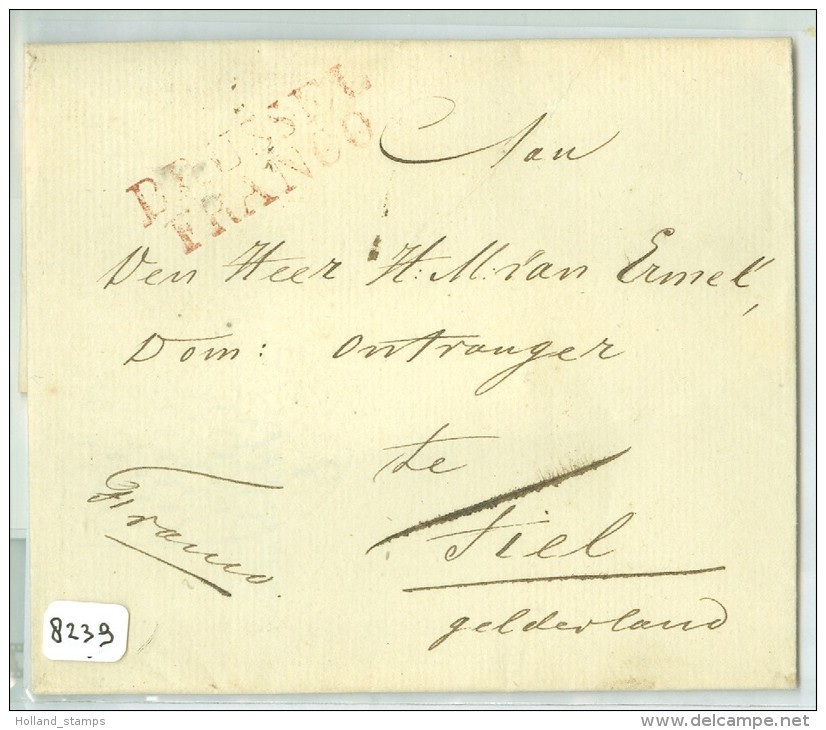 BRUSSEL
FRANCO
Aan
Den Heer H: M: van Ermel,
Dom: ontvanger
te
Tiel
gelderland
Franco.
8239
Holland_stamps
www.delcampe.net